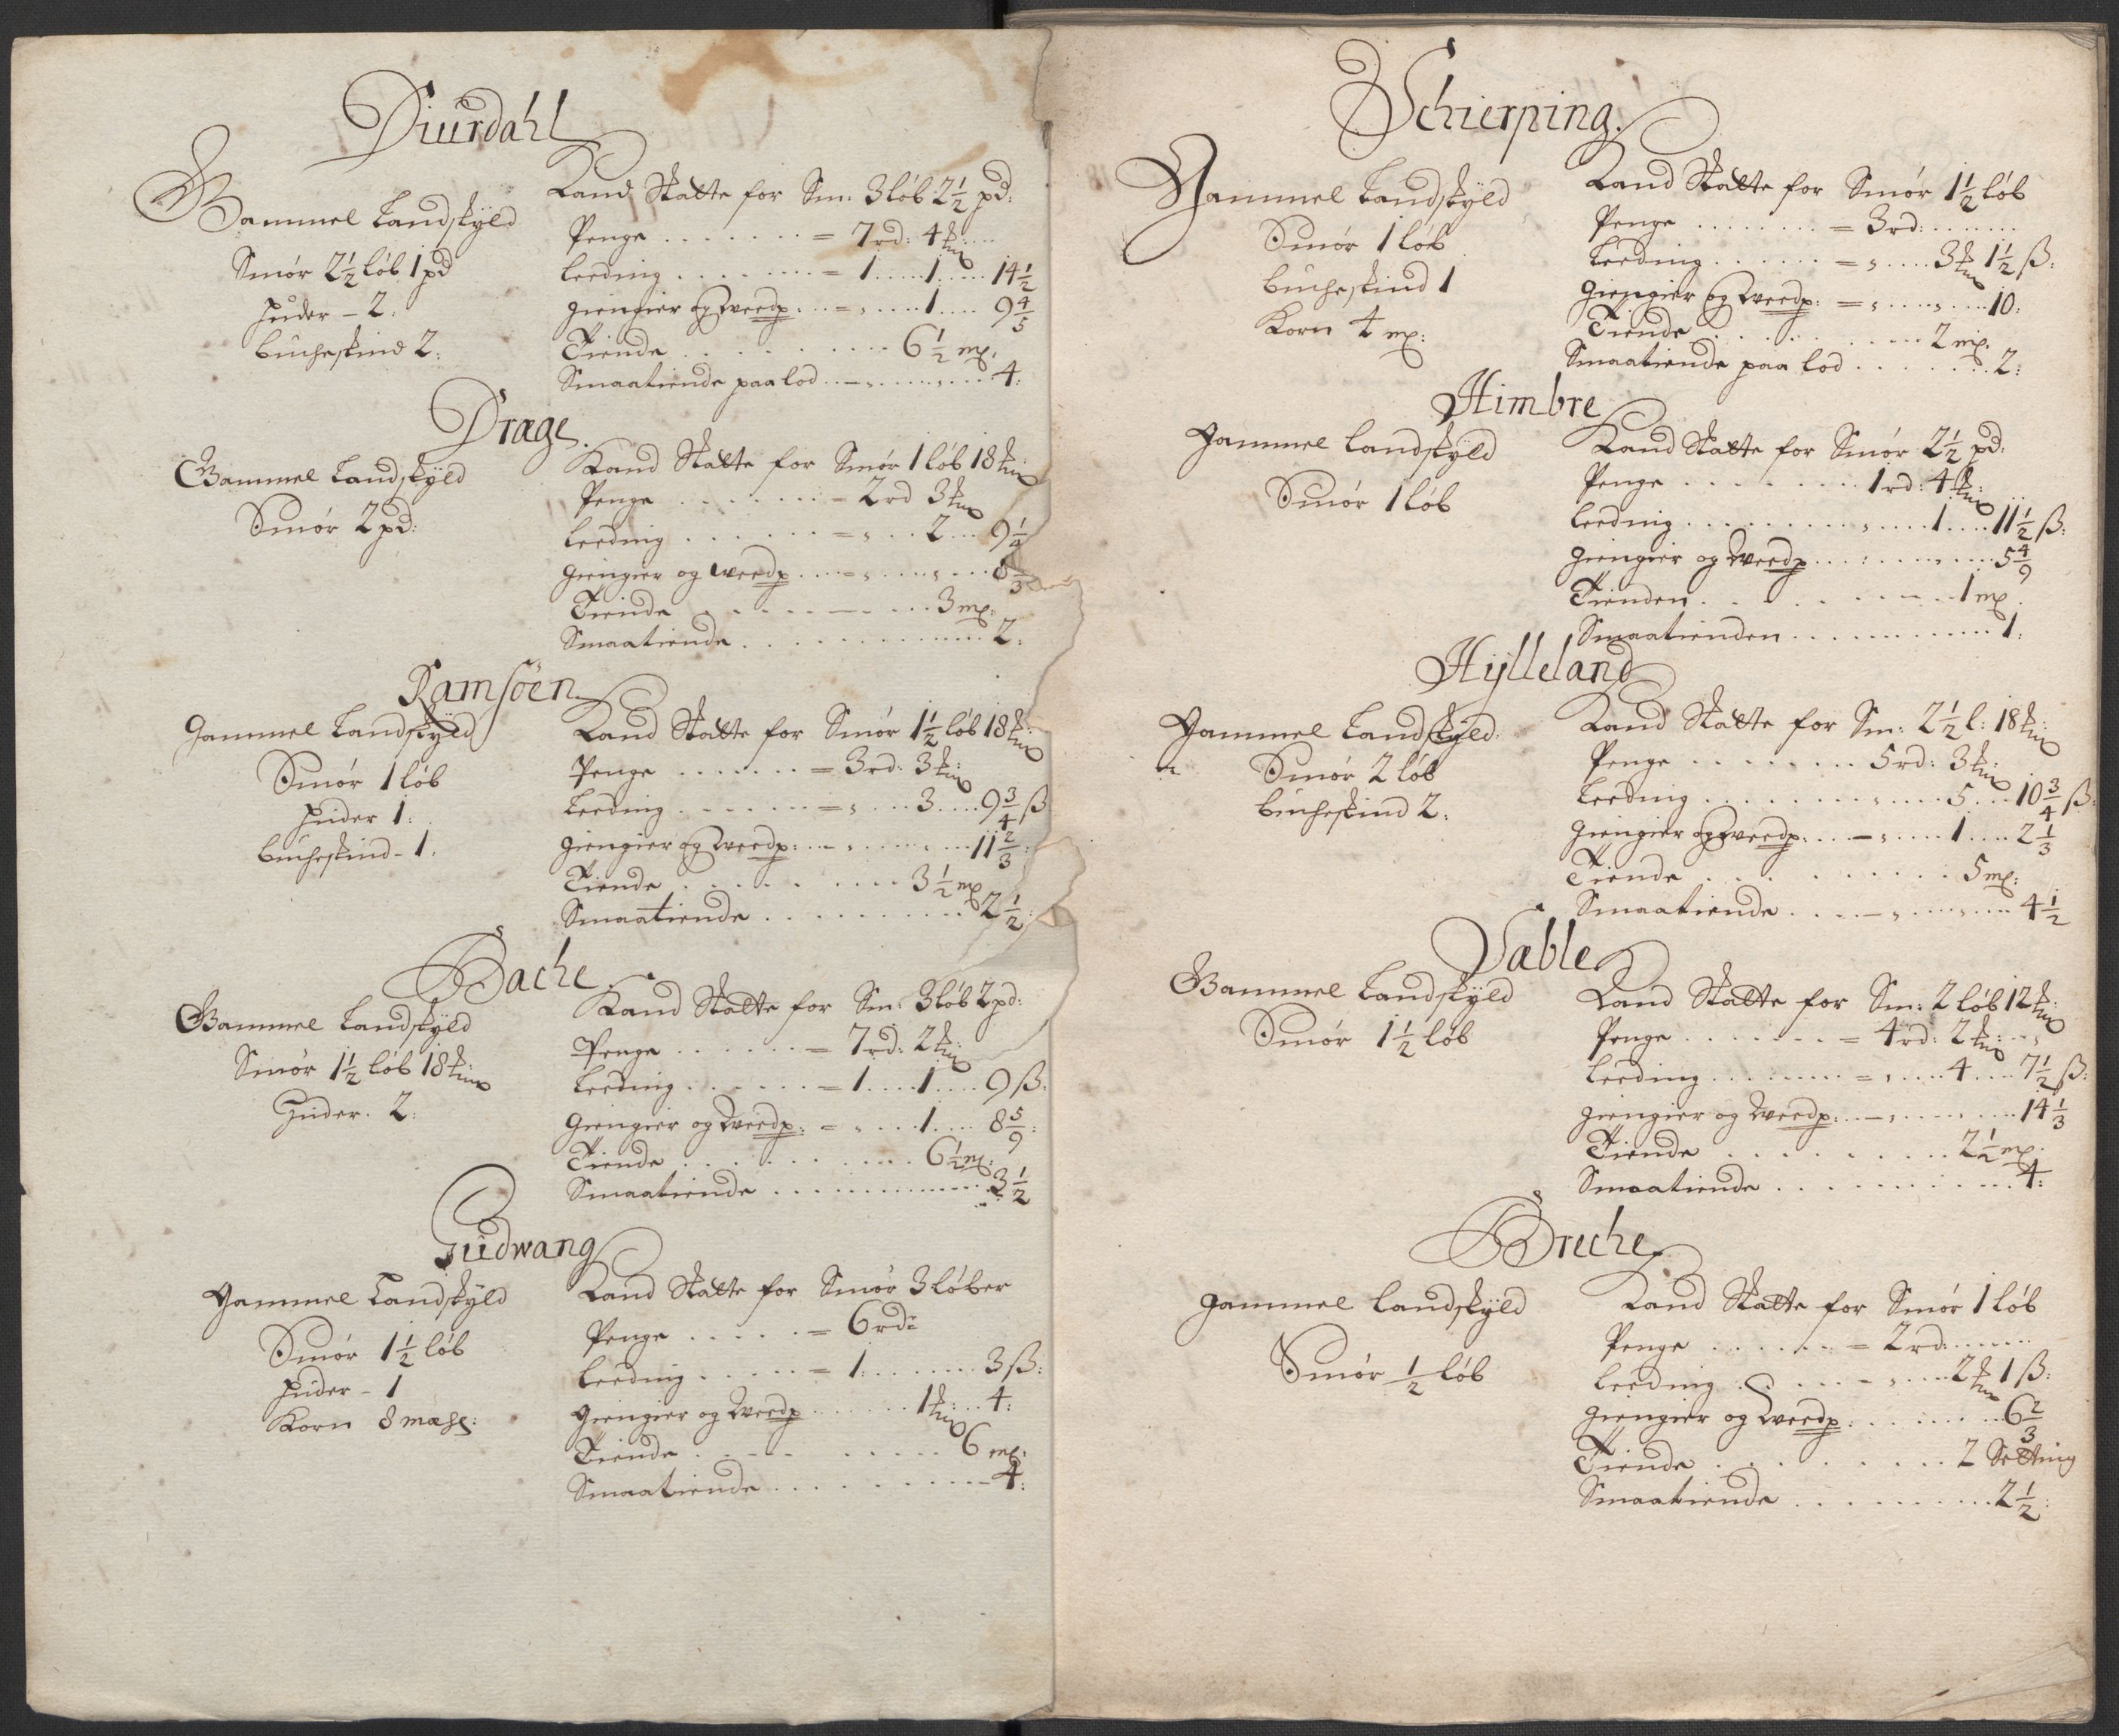 Diurdahl
Gammel Landskyld
Smør 2½ løb 1 pd
Huder - 2:
buckeskind 2:
Land Skatte for Sm: 3 løb 2½ pd:
Penge . . . . . . . = 7 rd: 4
Leeding . . . . . . . = 1 .... 1 .... 14½
giengier og Weedp. ..=.....1.... 9 4/5
Tiende . . . . . . . . . . 6½ mp.
Smaatiende paa lod ............4:
Drage.
Gammel Landskyld
Smør 2 pd:
Land Skatte for Smør 1 løb 18
Penge . . . . . . . - 2 rd 3
Leeding . . . . . . = . . . 2 ... 9¼
giengier og weedp ...=........8 /3
Tiende . . . . . . . . . . 3 mp:
Smaatiende . . . . . . . . . . . . 2:
Ramsöen
Gammel Landskyld
Smør 1 løb
Huder 1:
buckeskind - 1.
Land Skatte for Smør 1½ løb 18
Penge . . . . . . = 3 rd: 3
Leeding . . . . . . . = . . . 3 .... 9¾ ß
giengier og Weedp: . . . . . . . 11 2/3:
Tiende . . . . . . . . . 3½ mp
Smaatiende . . . . . . . . . . 2½:
Bache
Gammel Landskyld
Smør 1½ løb 18
Huder. 2:
Land Skatte for Sm: 3 løb 2 pd:
Penge . . . . . . = 7 rd: 2
Leeding . . . . . . = 1 .... 1 .... 9 ß:
Giengier og Weedp: = . . . . 1 .... 8 5/9:
Tiende . . . . . . . . . . 6½ mp:
Smaatiende ................ 3½
Gudwang
Gammel Landskyld
Smør 1½ løb
Huder - 1
Korn 8 mæhl:
Land Skatte for Smør 3 løber
Penge . . . . . = 6 rdr
Leeding . . . . . = 1 ........ 3 ß:
Giengier og Weedp . . . . . . 1 .. 4:
Tiende . . . . . . . . . . 6 mp:
Smaatiende . . . . . . . . . . 4:
Schierping.
Gammel Landskyld
Smør 1 løb
buckeskind 1
Korn 4 mp:
Land Skatte for Smør 1½ løb
Penge . . . . . . . = 3 rd: .......
Leeding . . . . . . = , .... 3 1½ ß:
giengier og Weedp: = , ....,.... 10:
Tiende . . . . . . . . . . . 2 mp.
Smaatiende paa lod . . . . . . . 2:
Himbre
Gammel landskyld
Smør 1 løb
Land Skatte for Smør 2½ pd:
Penge . . . . . . . . 1 rd: 4
Leeding . . . . . . . . . , .... 1 ... 11½ ß:
giengier og Weedp ............ 5 4/9
Tienden . . . . . . . . . . 1 mp
Smaatienden ............. 1:
Hylleland
Gammel Landskyld:
Smør 2 løb
buckeskind 2:
Land Skatte for Sm: 2½ l: 18
Penge . . . . . . . . 5 rd: 3
Leeding . . . . . . . . . , .... 5 ... 10¾ ß:
Giengier og Weedp: ...-,.... 1 .... 2 1/3
Tiende . . . . . . . . . . 5 mp:
Smaatiende . . . . - , ....,... 4½
Sæble
Gammel Landskyld
Smør 1½ løb
Land Skatte for Sm: 2 løb 12
Penge . . . . . . . = 4 rd: 2
Leeding ......... = , .... 4 .... 7½ ß:
giengier og Weedp: ..-,........ 14 1/3
Tiende . . . . . . . . . . 2½ mp.
Smaatiende . . . . . . . . . . . 4:
Breche
Gammel landskyld
Smør ½ løb
Land Skatte for Smør 1 løb
Penge . . . . . . = 2 rd: ......
Leeding . . . . . . - , .... 2 1 ß:
Giengier og Weedp: . . . . . . . 6 2/3
Tiende . . . . . . . . . 2 Setting
Smaatiende . . . . . . . . . . 2½: